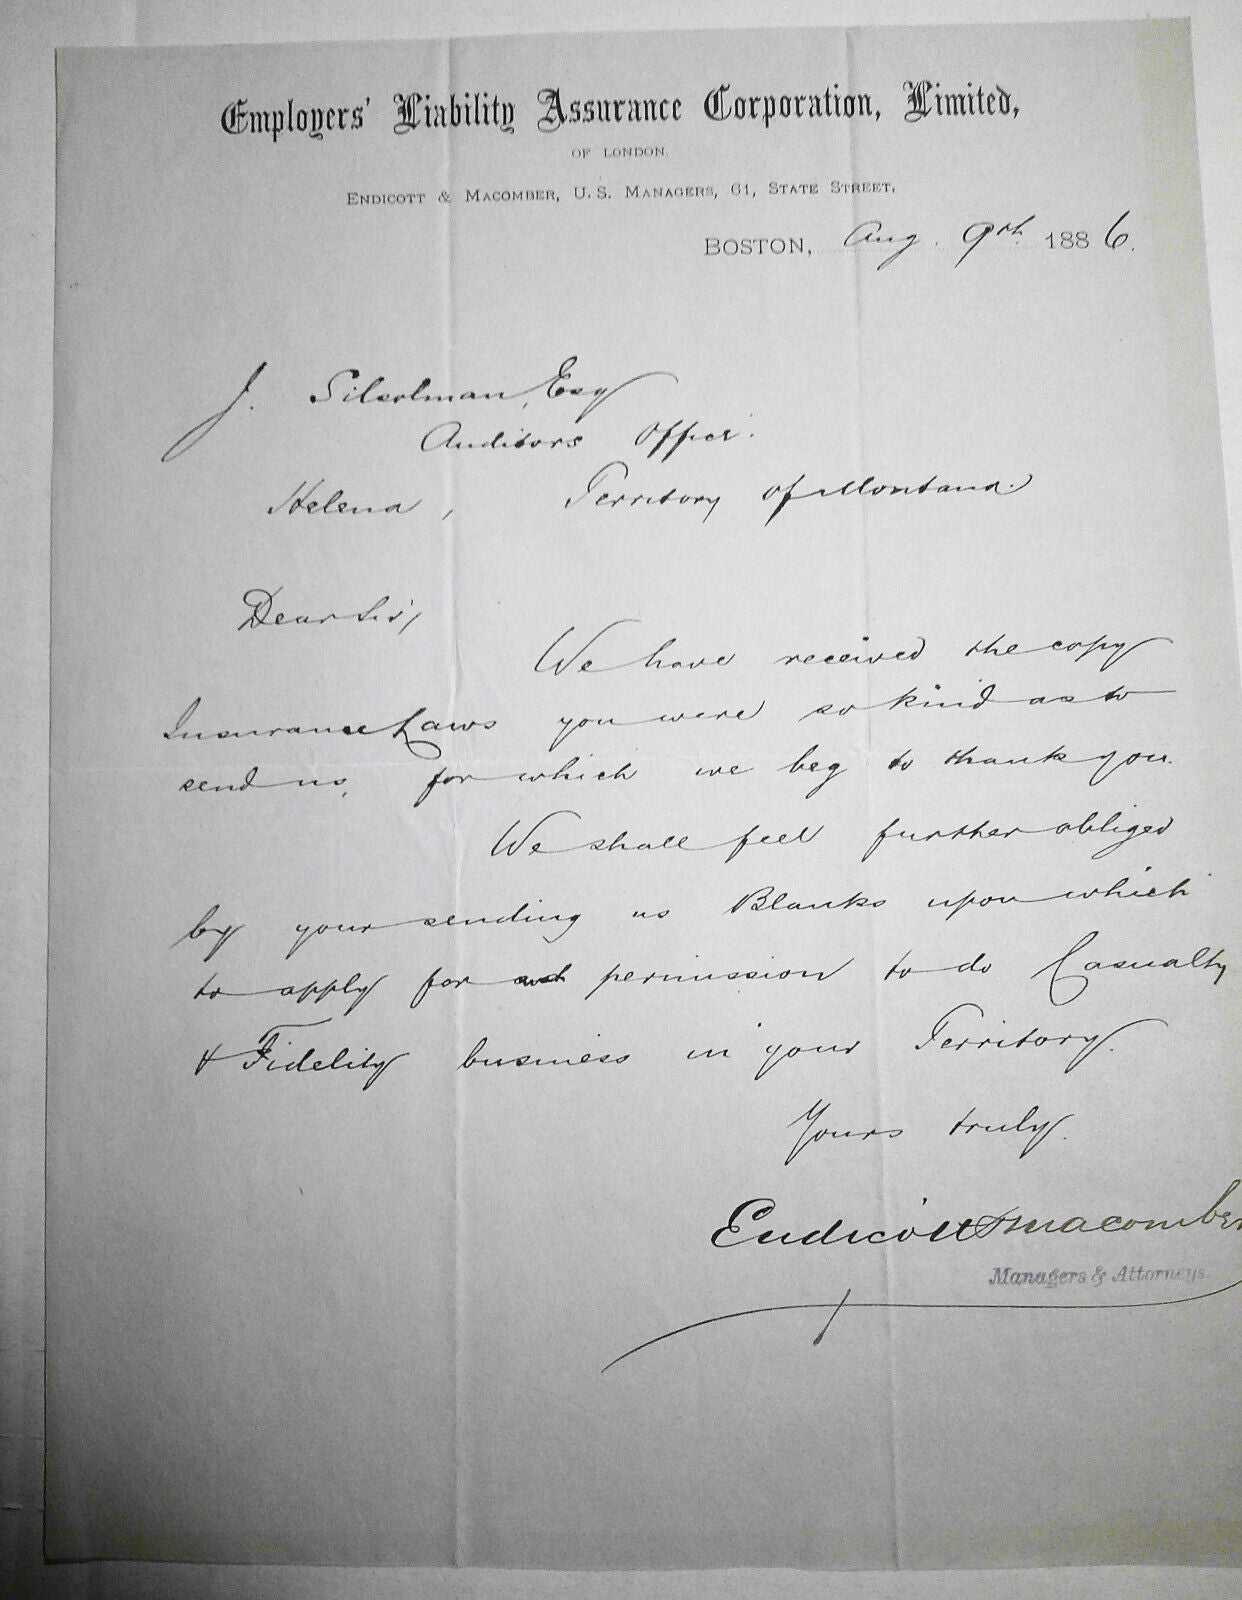 Employers' Liability Assurance Corporation, Limited,
OF LONDON.
ENDICOTT & MACOMBER, U. S. MANAGERS, 61, STATE STREET,
BOSTON, Aug. 9th. 1886.
J. Silsolman, Esq
Auditors Office.
Helena, Territory of Montana.
Dear Sir,
We have received the copy
Insurance Laws you were so kind as to
send us, for which we beg to thank you.
We shall feel further obliged
by your sending us Blanks upon which
to apply for permission to do Casualty
& Fidelity business in your Territory.
Yours truly.
Endicott & Macomber
Managers & Attorneys.